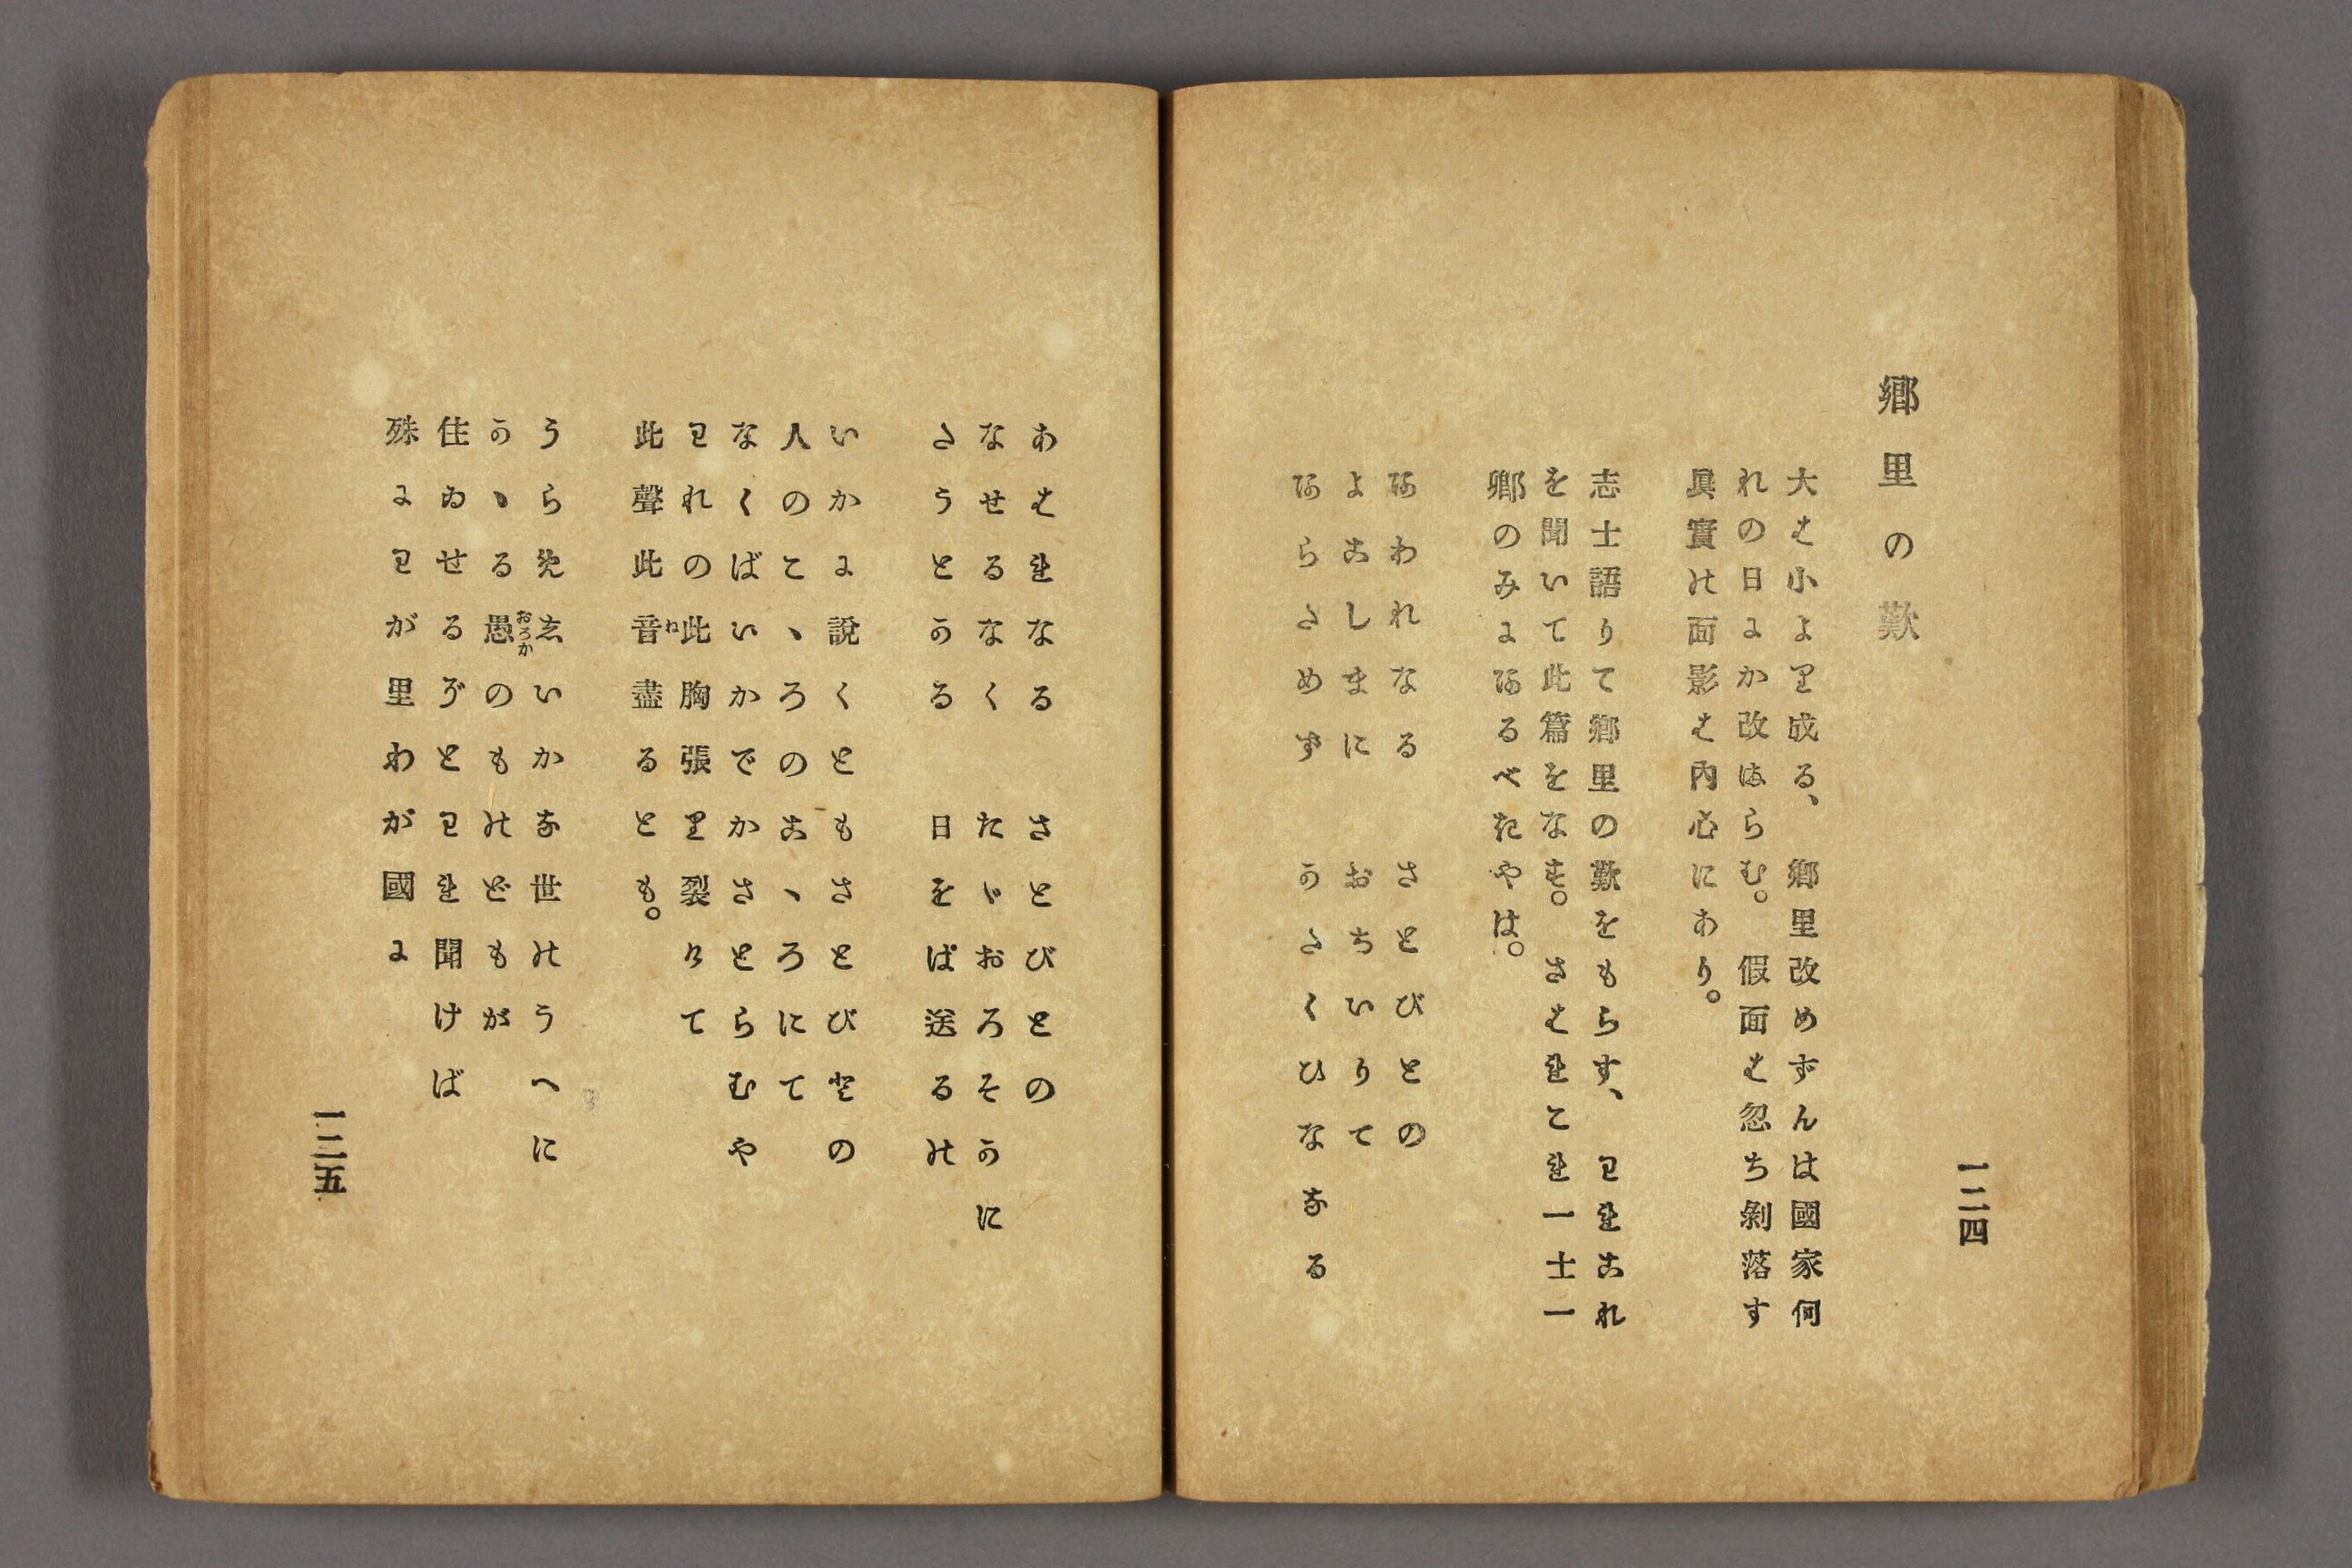 一二四
郷里の歎
大は小より成る、郷里改めずんは國家何
れの日にか改まらむ。假面は忽ち剝落す
眞實の面影は内心にあり。
志士語りて郷里の歎をもらす、われこれ
を聞いて此篇をなす。さはれこれ一士一
郷のみにあるべきやは。
あわれなる　さとびとの
よこしまに　おちいりて
あらためず　かたくひななる
あはれなる　さとびとの
なせるなく　たゞおろそかに
たうとかる　日をば送るの
いかに説くともさとびとの
人のこゝろのこゝろにて
なくばいかでかさとらむや
われの此胸張り裂けて
此聲此音ね盡るとも。
うらめしいかな世のうへに
かゝる愚おろかのものどもが
住ゐせるぞとわれ聞けば
殊にわが里わが國に
一二五